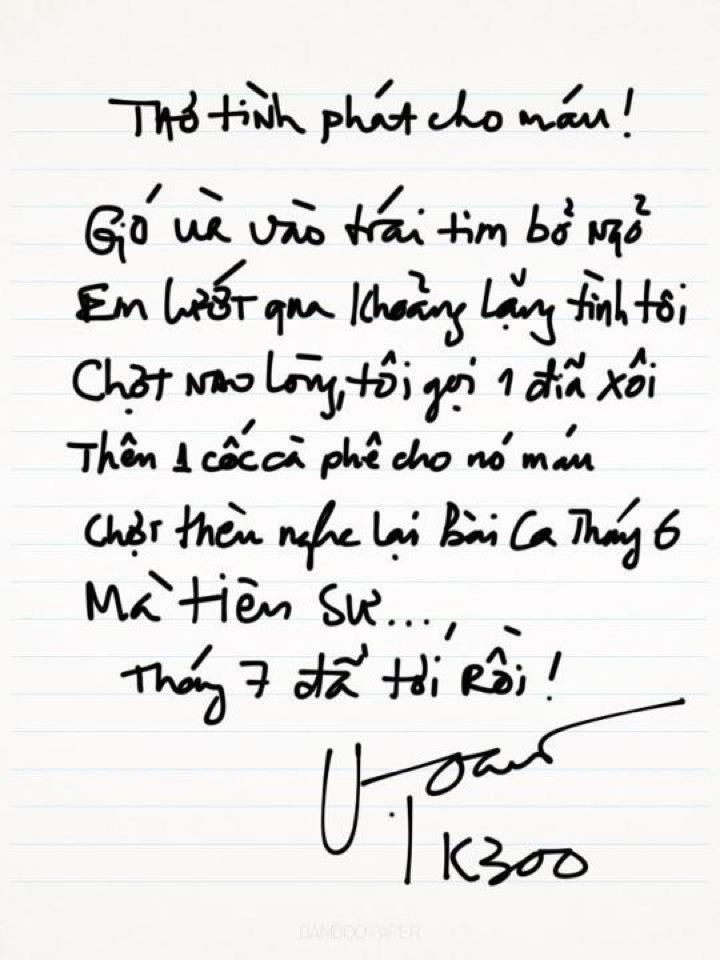 Thơ tình phát cho máu!
Gió ùa vào trái tim bở ngỡ
Em lướt qua khoảng lặng tình tôi
Chợt nao lòng, tôi gọi 1 đĩa xôi
Thêm 1 cốc cà phê cho nó máu
Chợt thèm nghe lại Bài Ca Tháng 6
Mà tiên sư...,
Tháng 7 đã tới Rồi!
K300
BAMBOO PAPER